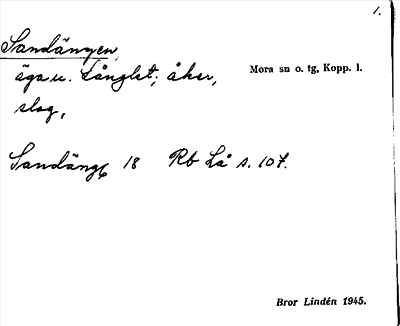 1.
Sandängen,
äga u. Långlet; åker,
Mora sn o. tg, Kopp. l.
slog,
Sandäng 18 Rb Lå s. 107.
Bror Lindén 1945.